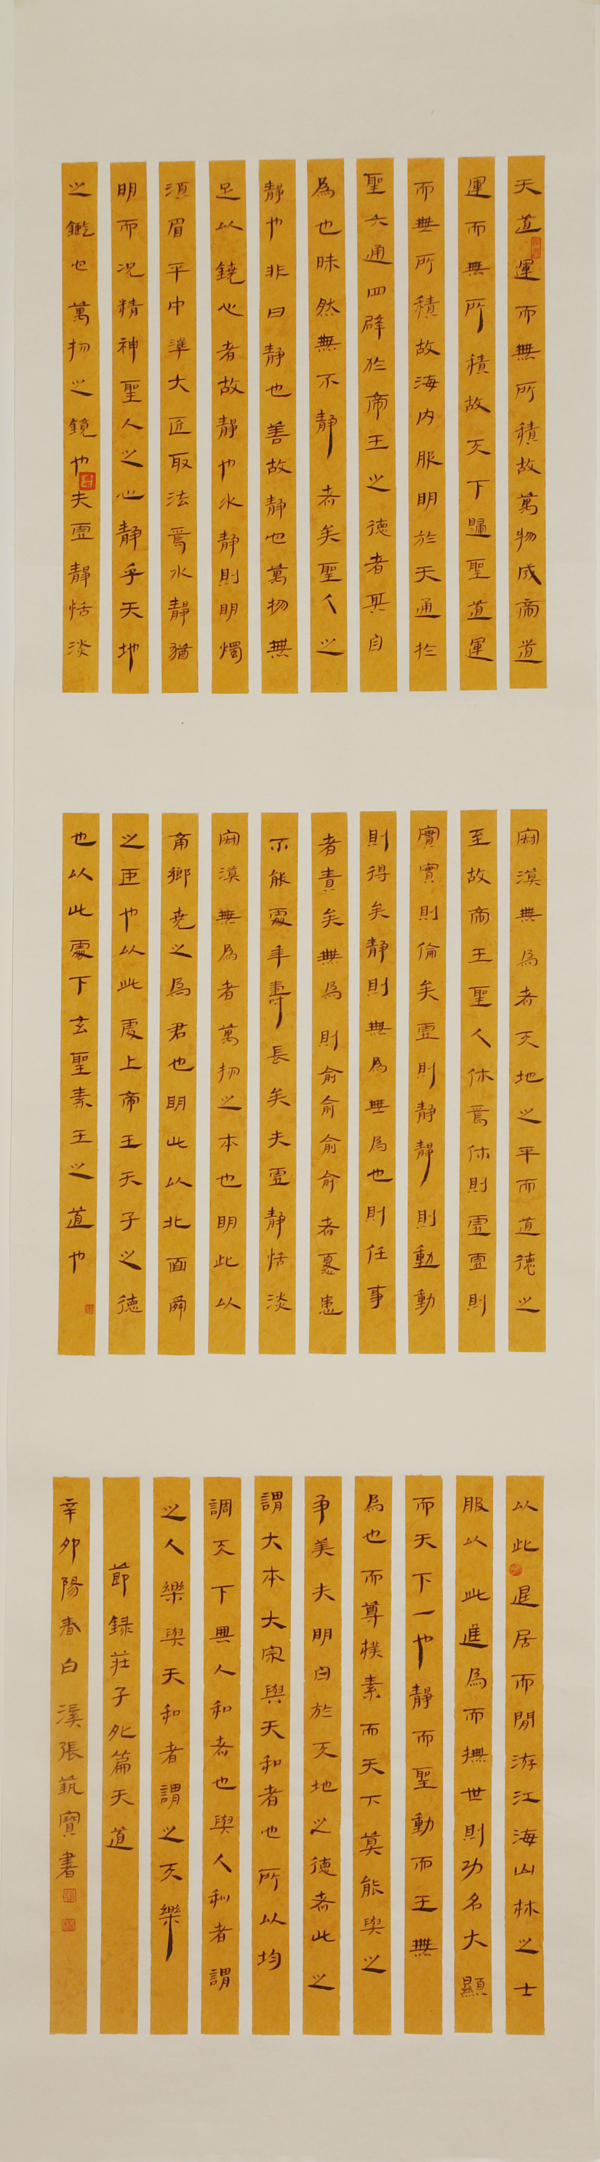 天道運而無所積故萬物成帝道
運而無所積故天下歸聖道運
而無所積故海內服明於天通於
聖六通四辟於帝王之德者其自
為也昧然無不靜者矣聖人之
靜也非曰靜也善故靜也萬物無
足以鐃心者故靜也水靜則明燭
須眉平中準大匠取法焉水靜猶
明而況精神聖人之心靜乎天地
之鑑也萬物之鏡也夫虛靜恬淡
寂漠無為者天地之平而道德之
至故帝王聖人休焉休則虛虛則
實實則倫矣虛則靜靜則動動
則得矣靜則無為無為也則任事
者責矣無為則俞俞俞俞者憂患
不能處年壽長矣夫虛靜恬淡
寂漠無為者萬物之本也明此以
南鄉堯之為君也明此以北面舜
之臣也以此處上帝王天子之德
也以此處下玄聖素王之道也
以此退居而閒游江海山林之士
服以此進為而撫世則功名大顯
而天下一也靜而聖動而王無
為也而尊樸素而天下莫能與之
爭美夫明白於天地之德者此之
謂大本大宗與天和者也所以均
調天下與人和者也與人和者謂
之人樂與天和者謂之天樂
節錄莊子外篇天道
辛卯陽春白溪張藝寶書